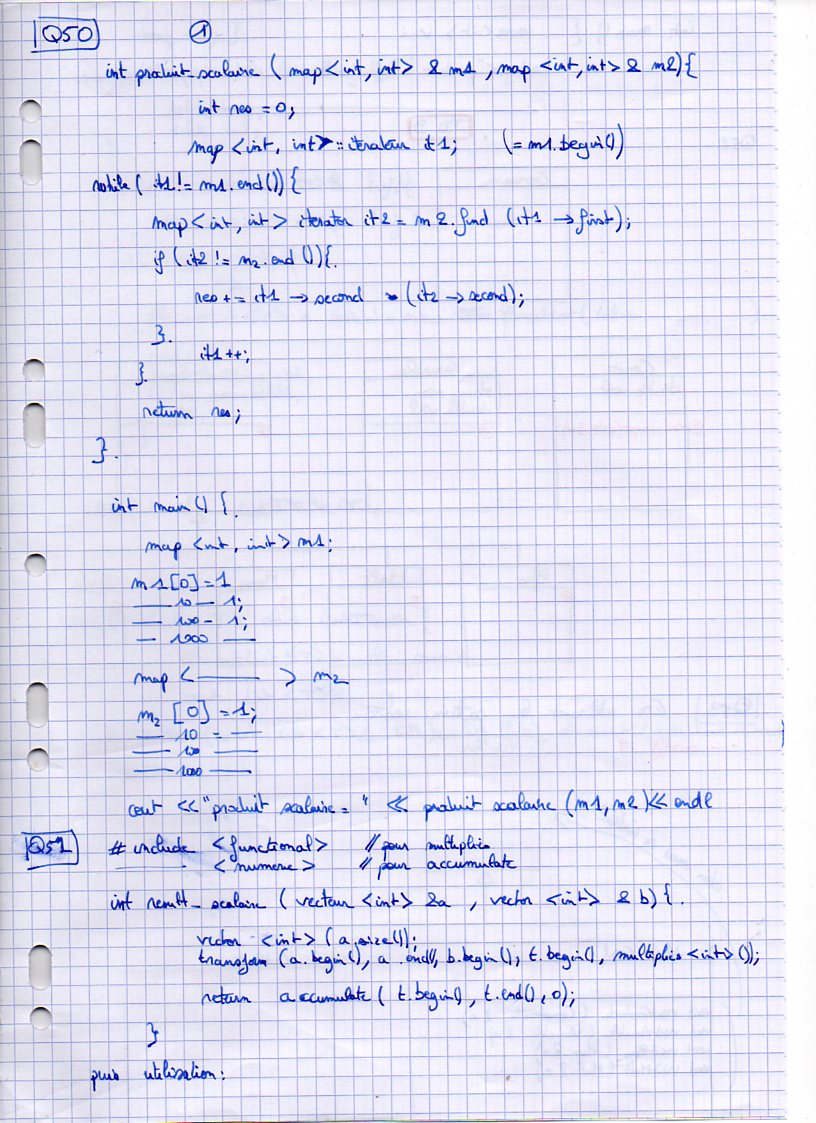 Q50 1
int produit_scalaire ( map <int, int> & m1, map <int, int> & m2){
int res = 0;
map <int, int>::iterateur it1; (= m1.begin())
while ( it1 != m1.end()){
map <int, int> iterator it2 = m2.find (it1 → first);
if (it2 != m2.end ()){.
res += it1 → second * (it2 → second);
}.
it1 ++;
}.
return res;
}.
int main () {.
map <int, int> m1;
m1[0] = 1
— 10 — 1;
— 100 - 1;
— 1000 —
map < — > m2
m2 [0] = 1;
— 10 = —
— 100 —
— 1000 —
cout << "produit scalaire = " << produit scalaire (m1, m2) << endl
Q51 # include <functional> // pour multiplies
— <numeric> // pour accumulate
int result_scalaire ( vecteur <int> &a, vector <int> & b) {.
vector <int> (a.size());
transform (a.begin(), a.end(), b.begin(), t.begin(), multiplies <int> ());
return accumulate ( t.begin(), t.end(), 0);
}
puis utilisation: